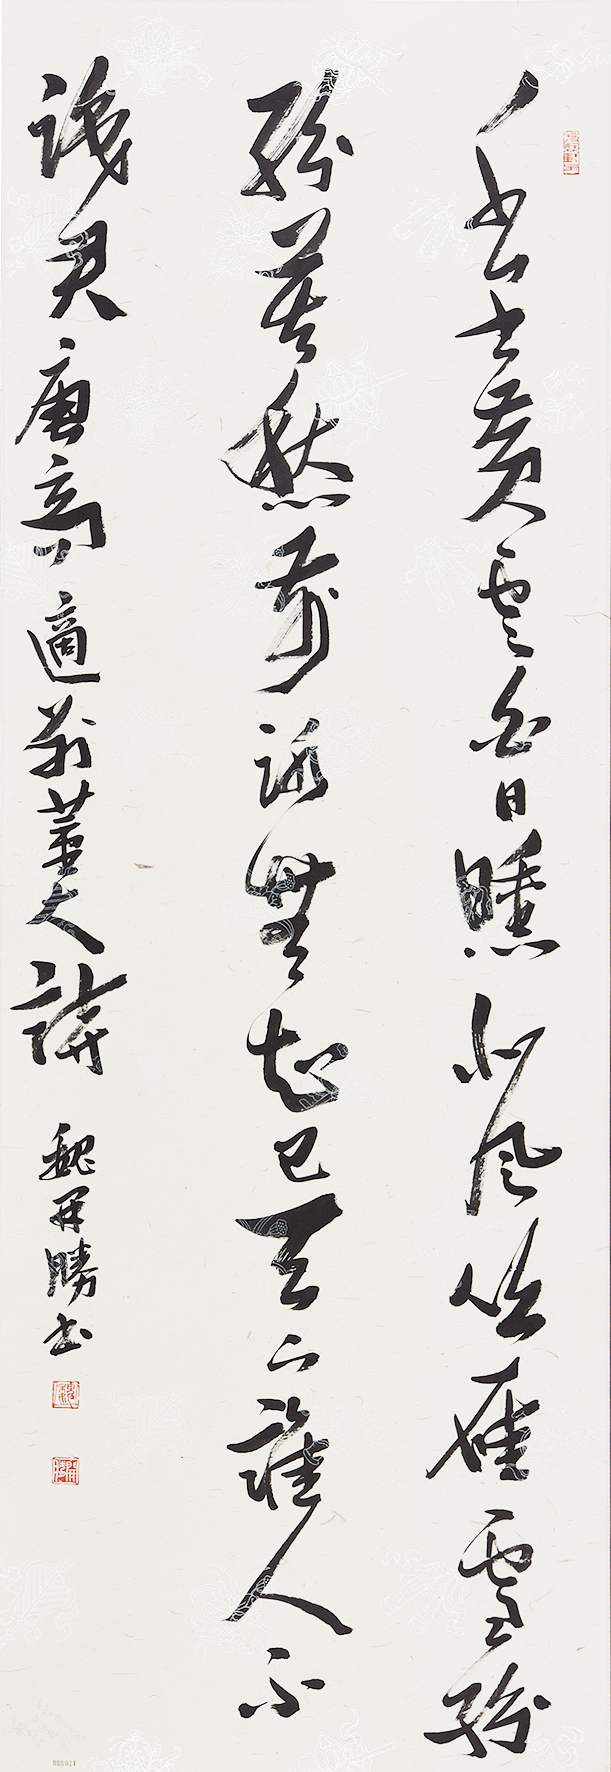 千里黄雲白日曛北風吹雁雪紛
紛莫愁前路無知己天下誰人不
識君 唐高適别董大詩 魏开勝书